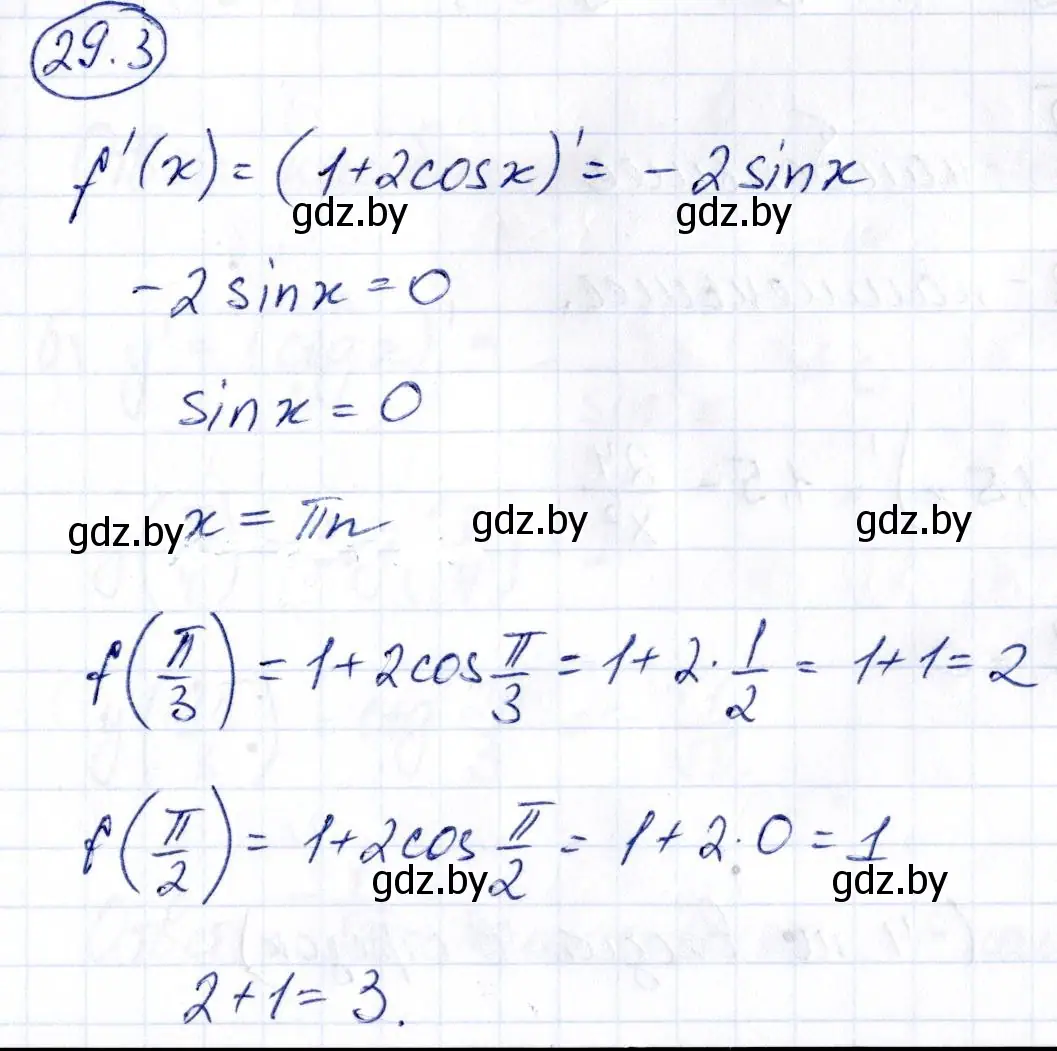 29.3
f'(x) = (1+2cosx)' = -2sinx
gdz.by gdz.by
-2sinx = 0
sinx = 0
x = πn
gdz.by gdz.by gdz.by
f(π/3) = 1+2cos π/3 = 1+2·1/2 = 1+1 = 2
f(π/2) = 1+2cos π/2 = 1+2·0 = 1
gdz.by gdz.by
2+1 = 3.